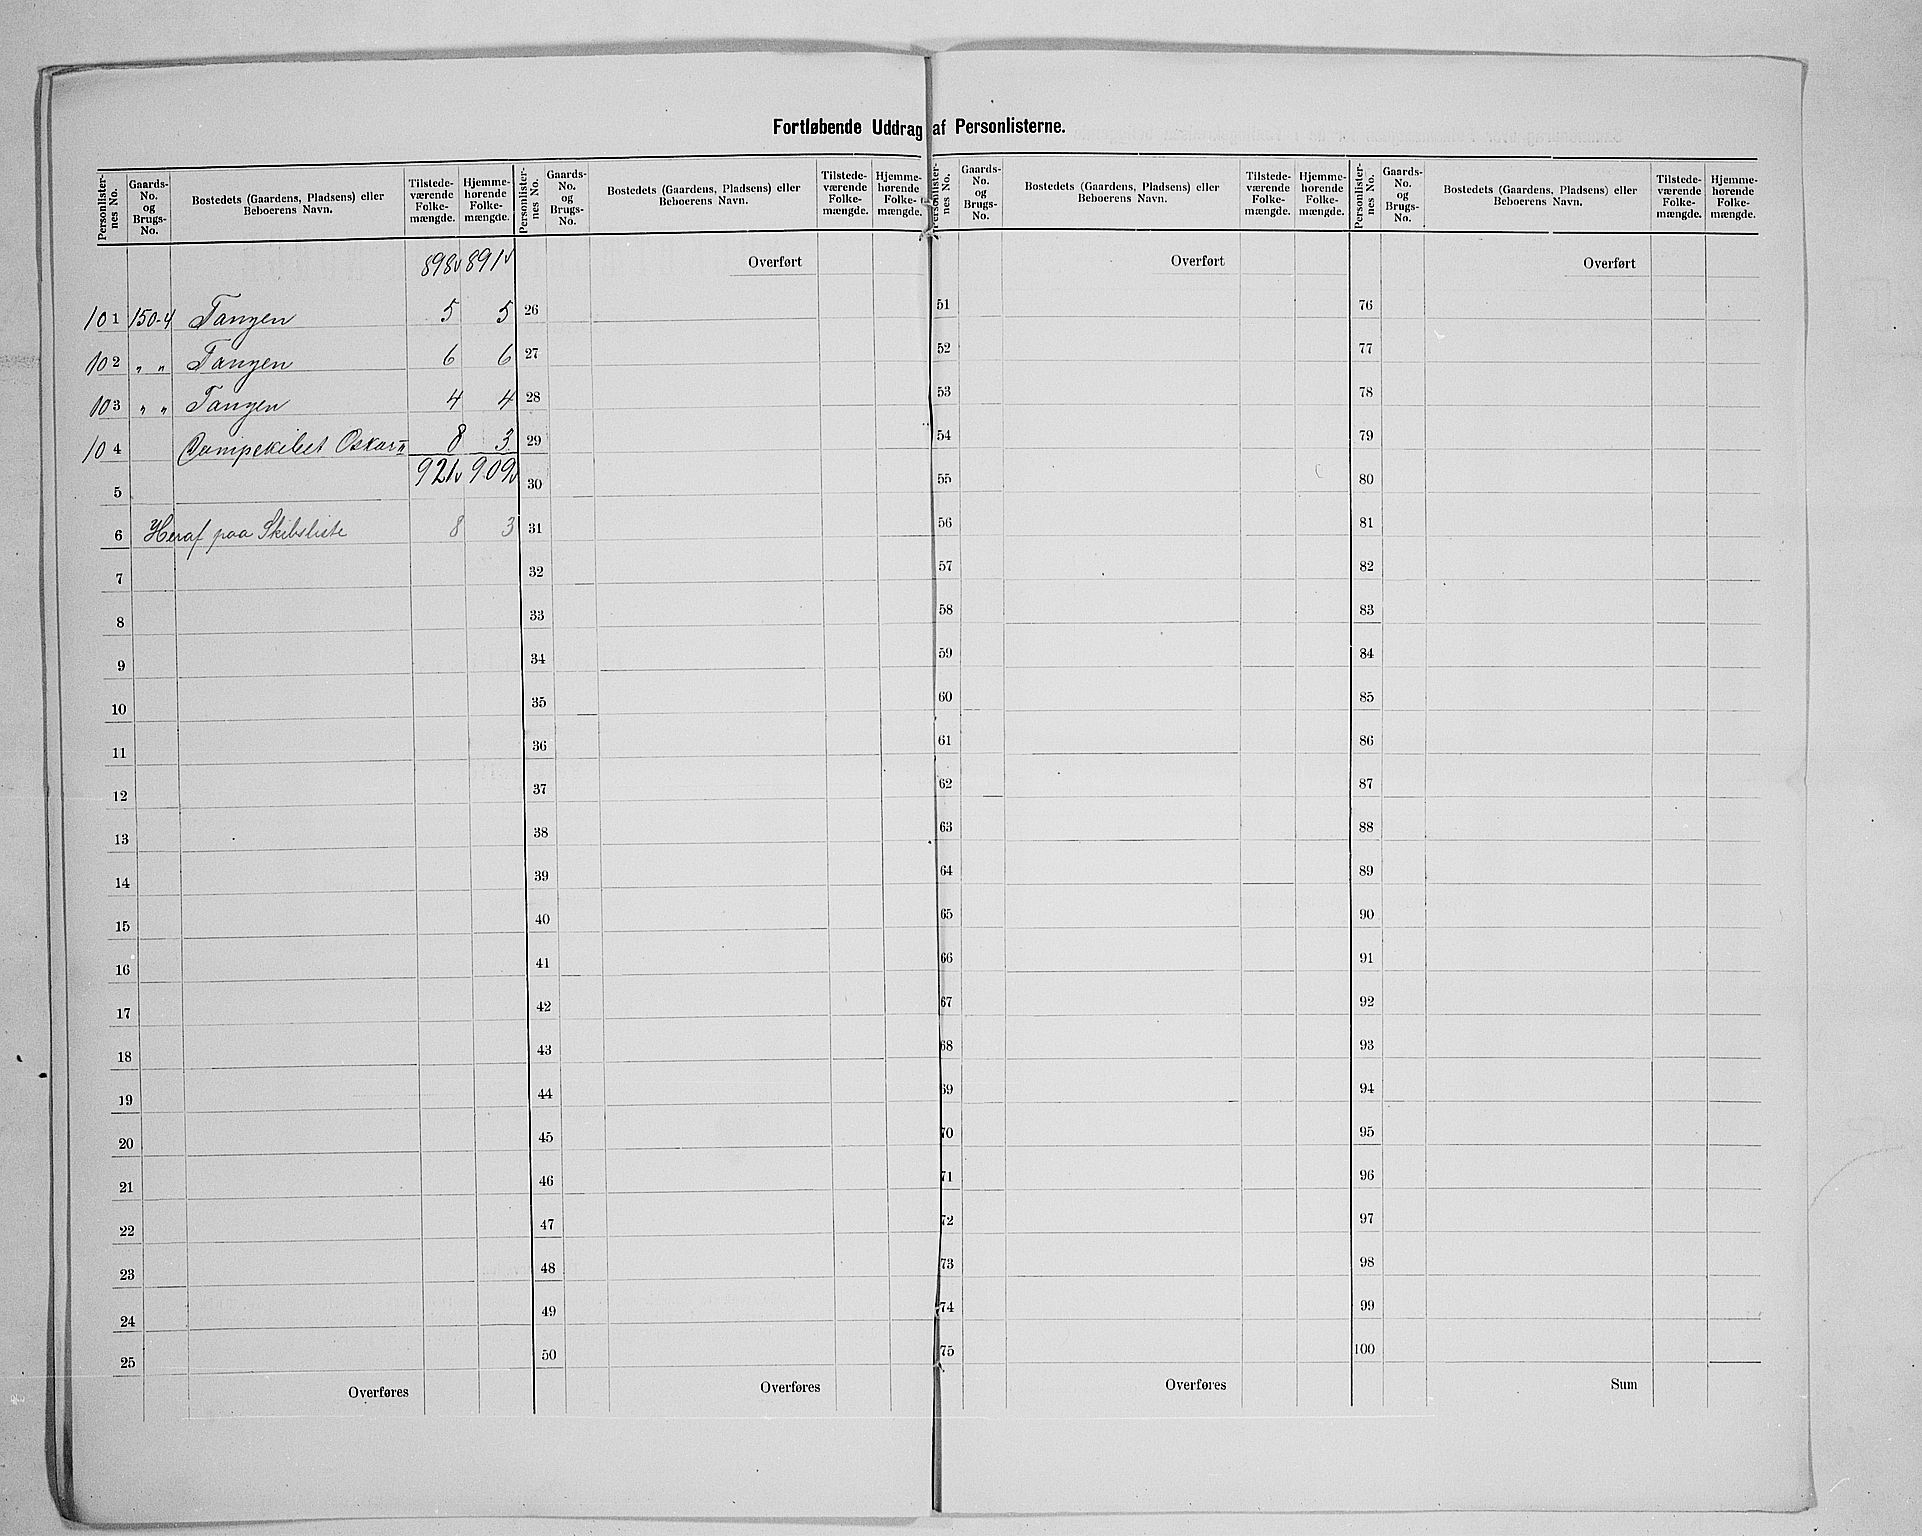 Fortløbende Uddrag af Personlisterne.
Personlister-nes No. Gaards-No. og Brugs-No. Bostedets (Gaardens, Pladsens) eller Beboerens Navn. Tilstede-værende Folke-mængde. Hjemme-hørende Folke-mængde.
898 891
101 150-4 Tangen 5 5
102 „ „ Tangen 6 6
103 „ „ Tangen 4 4
104 Dampskibet Oskar II 8 3
5 921 909
6 Heraf paa Skibsliste 8 3
7
8
9
10
11
12
13
14
15
16
17
18
19
20
21
22
23
24
25
Overføres
Personlister-nes No. Gaards-No. og Brugs-No. Bostedets (Gaardens, Pladsens) eller Beboerens Navn. Tilstede-værende Folke-mængde. Hjemme-hørende Folke-mængde.
Overført
26
27
28
29
30
31
32
33
34
35
36
37
38
39
40
41
42
43
44
45
46
47
48
49
50
Overføres
Personlister-nes No. Gaards-No. og Brugs-No. Bostedets (Gaardens, Pladsens) eller Beboerens Navn. Tilstede-værende Folke-mængde. Hjemme-hørende Folke-mængde.
Overført
51
52
53
54
55
56
57
58
59
60
61
62
63
64
65
66
67
68
69
70
71
72
73
74
75
Overføres
Personlister-nes No. Gaards-No. og Brugs-No. Bostedets (Gaardens, Pladsens) eller Beboerens Navn. Tilstede-værende Folke-mængde. Hjemme-hørende Folke-mængde.
Overført
76
77
78
79
80
81
82
83
84
85
86
87
88
89
90
91
92
93
94
95
96
97
98
99
100
Sum